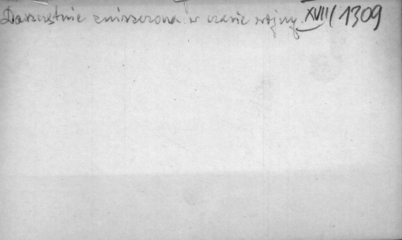 Doszczętnie zniszczona w czasie wojny XVIII/1309